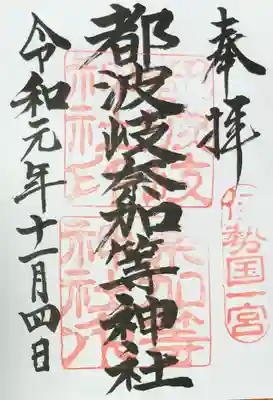 奉拝
伊勢国一宮
都波岐奈加等神社
令和元年十一月四日